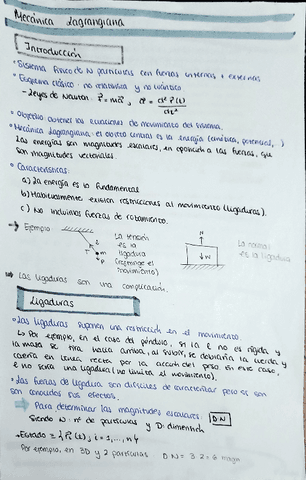 Mecánica Lagrangiana
Introducción
• Sistema físico de N partículas con fuerzas internas + externas
• Esquema clásico: no relativista y no cuántico
- Leyes de Newton: F = ma, a = d² r(t) / dt²
• Objetivo: obtener las ecuaciones de movimiento del sistema.
• Mecánica Lagrangiana: el objeto central es la energía (cinética, potencial, )
Las energías son magnitudes escalares, en oposición a las fuerzas, que
son magnitudes vectoriales.
• Características:
a) La energía es lo fundamental
b) Habitualmente existen restricciones al movimiento (ligaduras).
c) No incluimos fuerzas de rozamiento.
→ Ejemplo
La tensión
es la
ligadura
(restringe el
movimiento)
T
m
P
N
W
La normal
es la ligadura
Las ligaduras son una complicación.
Ligaduras
• Las ligaduras suponen una restricción en el movimiento
↳ Por ejemplo, en el caso del péndulo, si la l no es rígida y
la masa se tira hacia arriba, al subir, se doblaría la cuerda y
caería en línea recta por la acción del peso. En este caso,
l no sería una ligadura (no limita el movimiento).
• Las fuerzas de ligadura son difíciles de caracterizar pero sí son
son conocidos sus efectos.
Para determinar las magnitudes escalares: DN
Siendo N: nº de partículas y D: dimensión
- Estado = { (t), i = 1, ..., n}
Por ejemplo, en 3D y 2 partículas DN = 3·2 = 6